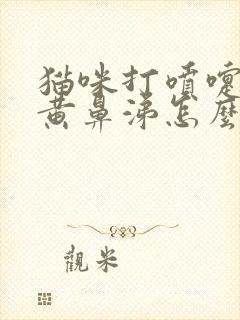 猫咪打噴嚏
黄鼻涕怎麼
觀米